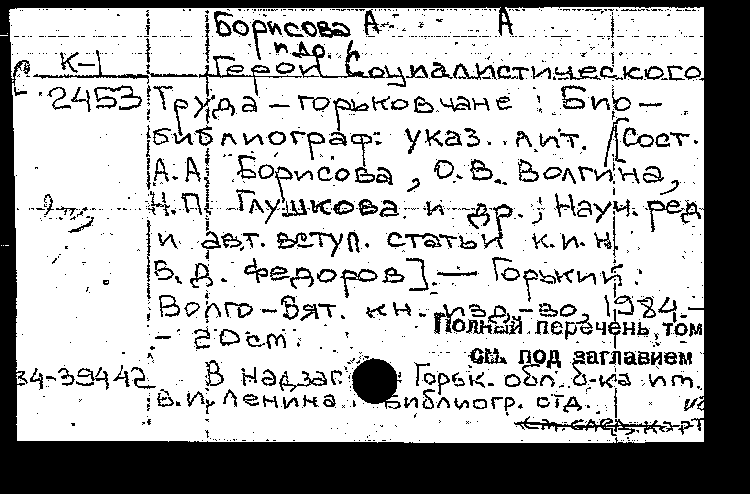 Борисова А А
и др.
К-1 Герои Социалистического
2453 Труда – горьковчане : Био–
библиограф. указ. лит. / [Сост.
А.А. Борисова, О.В. Волгина,
Н.П. Глушкова и др.; Науч. ред
и авт. вступ. статьи к.и.н.
В.Д. Федоров]. — Горький :
Волго-Вят. кн. изд-во, 1984.–
– 20 см.
Полный перечень том
см. под заглавием
84-39442 В надзаг Горьк. обл. б-ка им.
В.И. Ленина. Библиогр. отд.
см. след. карт